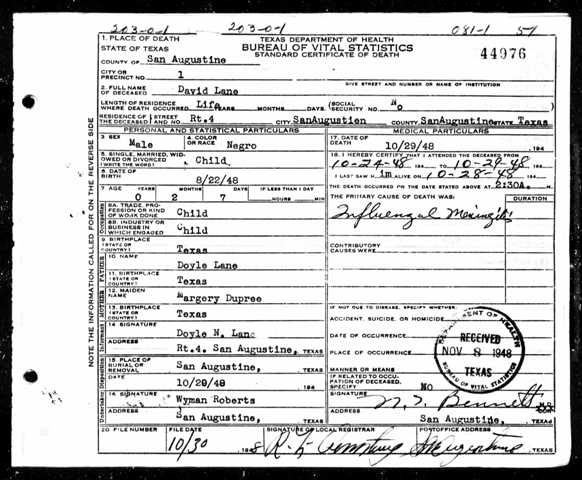 203-0-1 203-0-1 081-1 57
1. PLACE OF DEATH
STATE OF TEXAS
TEXAS DEPARTMENT OF HEALTH
BUREAU OF VITAL STATISTICS
STANDARD CERTIFICATE OF DEATH
44976
COUNTY OF San Augustine
CITY OR PRECINCT NO. 1
GIVE STREET AND NUMBER OR NAME OF INSTITUTION
2. FULL NAME OF DECEASED David Lane
LENGTH OF RESIDENCE WHERE DEATH OCCURRED Life YEARS MONTHS DAYS (SOCIAL No
RESIDENCE OF THE DECEASED STREET AND NO. Rt.4 CITY SanAugustien COUNTY SanAugustine STATE Texas
PERSONAL AND STATISTICAL PARTICULARS
3. SEX Male
4. COLOR OR RACE Negro
5. SINGLE, MARRIED, WIDOWED OR DIVORCED (WRITE THE WORD) Child.
6. DATE OF BIRTH 8/22/48
7. AGE YEARS MONTHS DAYS IF LESS THAN 1 DAY
0 2 7 HOURS MIN
8A. TRADE, PROFESSION OR KIND OF WORK DONE Child
8B. INDUSTRY OR BUSINESS IN WHICH ENGAGED Child
9. BIRTHPLACE (STATE OR COUNTRY) Texas
10. NAME Doyle Lane
11. BIRTHPLACE (STATE OR COUNTRY) Texas
12. MAIDEN NAME Margery Dupree
13. BIRTHPLACE (STATE OR COUNTRY) Texas
14. SIGNATURE Doyle N. Lane
ADDRESS Rt.4. San Augustine, TEXAS
15. PLACE OF BURIAL OR REMOVAL San Augustine, TEXAS
DATE 10/29/48 194
16. SIGNATURE Wyman Roberts
ADDRESS San Augustine, TEXAS
MEDICAL PARTICULARS
17. DATE OF DEATH 10/29/48 194
18. I HEREBY CERTIFY THAT I ATTENDED THE DECEASED FROM
10-24-48 194 TO 10-29-48 194
I LAST SAW H im ALIVE ON 10-28-48 194
THE DEATH OCCURRED ON THE DATE STATED ABOVE AT 2:30A. M.
THE PRIMARY CAUSE OF DEATH WAS: DURATION
Influenzal Meningitis
CONTRIBUTORY CAUSES WERE
IF NOT DUE TO DISEASE, SPECIFY WHETHER:
ACCIDENT, SUICIDE, OR HOMICIDE
DATE OF OCCURRENCE
PLACE OF OCCURRENCE
MANNER OR MEANS
IF RELATED TO OCCUPATION OF DECEASED, SPECIFY NO
SIGNATURE Bennett
ADDRESS San Augustine, TEXAS
DEPARTMENT OF HEALTH
RECEIVED
NOV 8 1948
TEXAS
BUREAU OF VITAL STATISTICS
20 FILE NUMBER FILE DATE SIGNATURE OF LOCAL REGISTRAR POSTOFFICE ADDRESS
10/30 1948 S Augustine TEXAS
NOTE THE INFORMATION CALLED FOR ON THE REVERSE SIDE